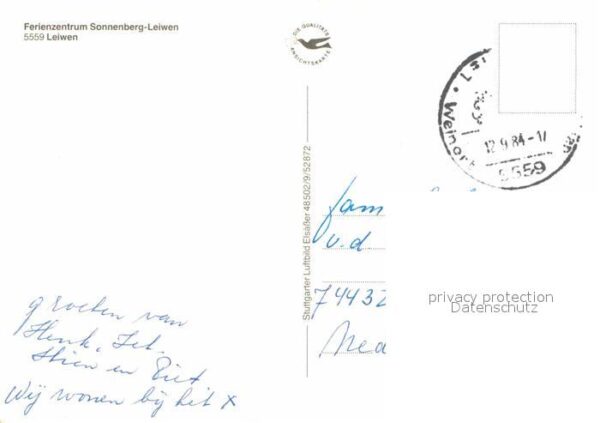 Ferienzentrum Sonnenberg-Leiwen
5559 Leiwen
DIE QUALITÄTS
ANSICHTSKARTE
Weinort
12.9.84-11
5559
Stuttgarter Luftbild Elsäßer 48502/9/52872
fam
v.d
74432
Nea
privacy protection
Datenschutz
groeten van
Henk,
Stien en Piet
Wij wonen bij het x